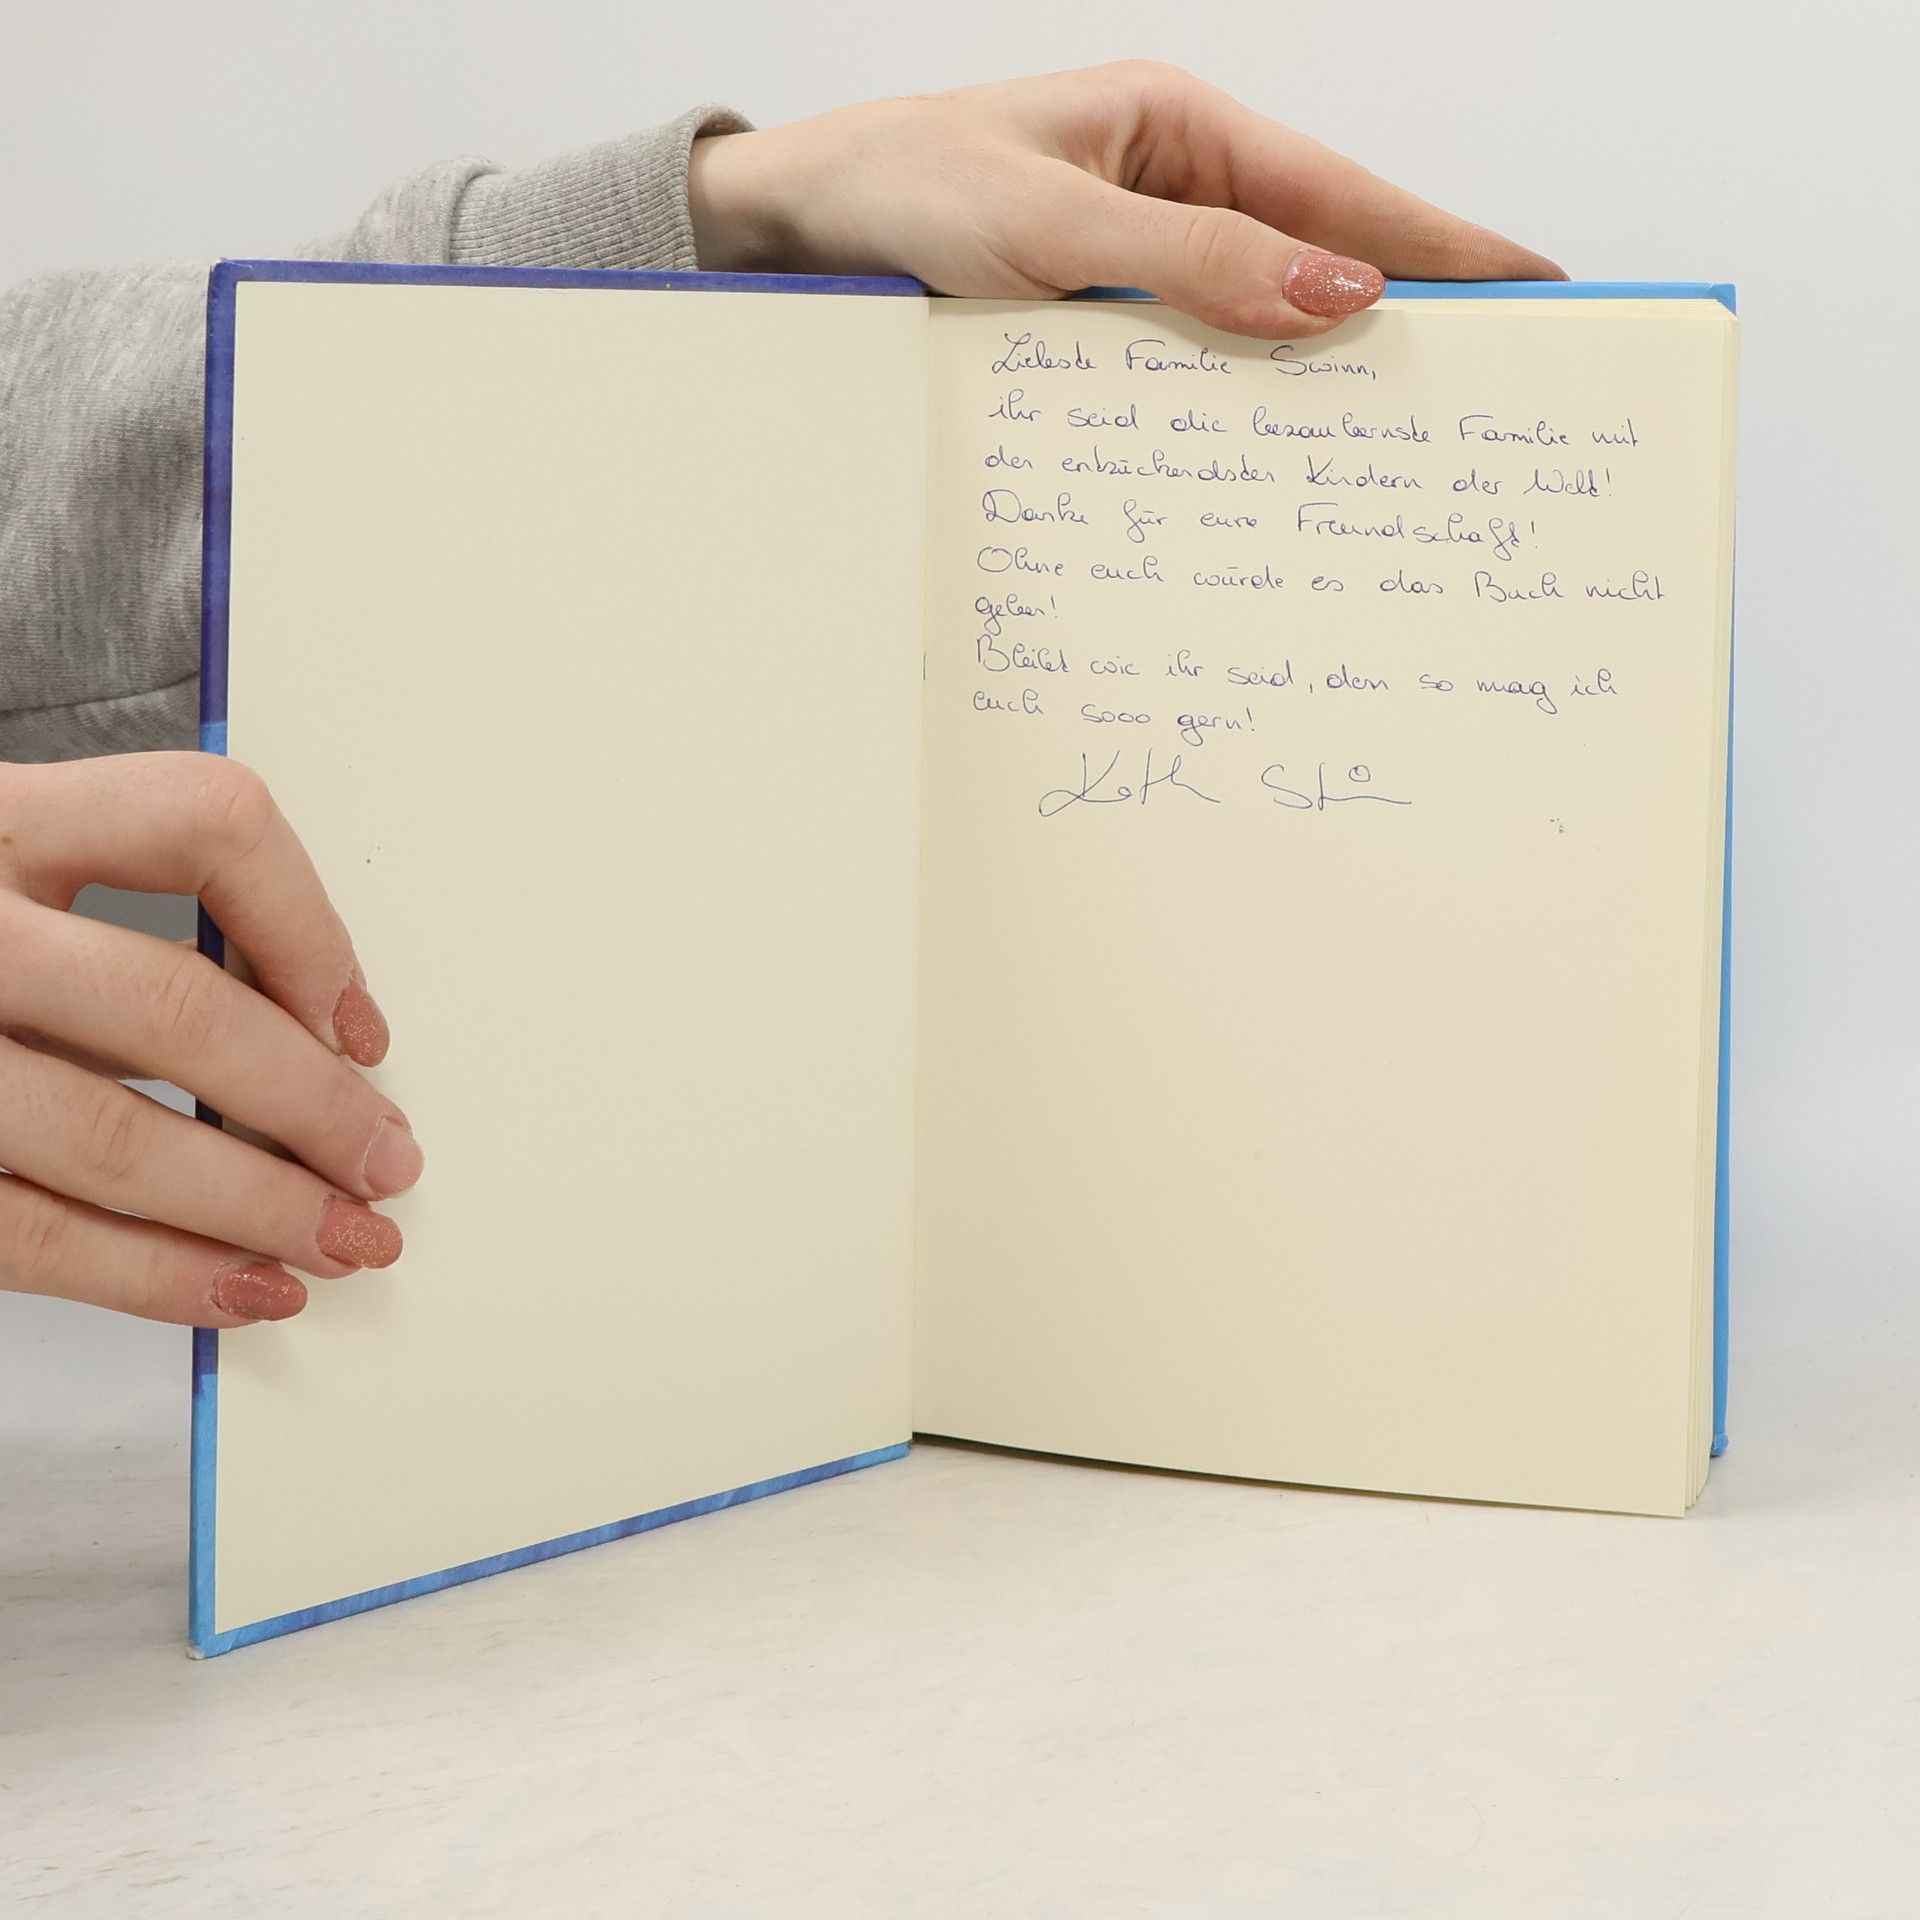 Liebste Familie Swinn,
ihr seid die bezaubernste Familie mit
den entzückendsten Kindern der Welt!
Danke für eure Freundschaft!
Ohne euch würde es das Buch nicht
geben!
Bleibt wie ihr seid, denn so mag ich
euch sooo gern!